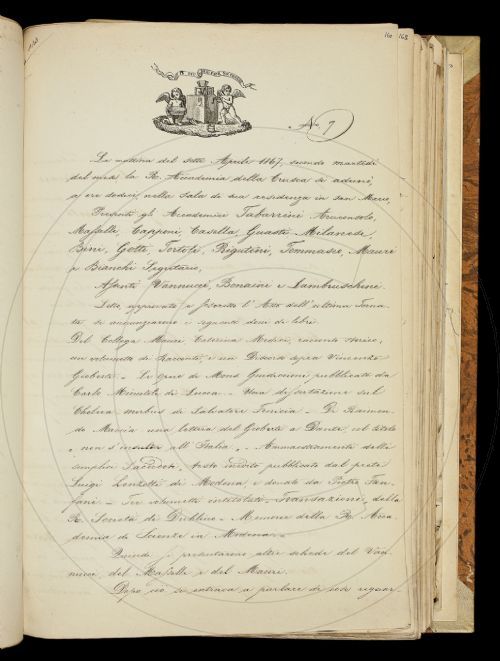 160 168
7
La mattina del sette Aprile 1867, secondo martedì
del mese la R. Accademia della Crusca si adunò,
a ore dodici, nella sala di sua residenza in San Marco,
Presenti gli Accademici Tabarrini Arciconsolo,
Maffei, Capponi, Casella, Guasti, Milanesi,
Bini, Gotti, Tortoli, Rigutini, Tommaseo, Mauri
e Bianchi Segretario,
Assenti Vannucci, Bonaini e Lambruschini.
Letto, approvato e l'Atto dell'ultima Torna-
ta, si annunziarono i seguenti doni di libri
Del Collega Mauri Caterina Medici, racconto storico,
un volumetto di Racconti, e un Discorso sopra Vincenzo
Gioberti - Le opere di Mons. Guidiccioni pubblicate da
Carlo Minutoli di Lucca - Una dissertazione sul
Cholera morbus di Salvatore - Di Raimon-
do una lettera del Gioberti a Dante, col titolo
e non s'insulti all'Italia, - Ammaestramento delle
semplici testo inedito pubblicato dal prete
Luigi di Modena e donato da Pietro Fan-
fani - Tre volumetti intitolati, Transazioni, della
R. Società di Dublino - Memorie della R. Acca-
demia di Scienze in Modena -
Quindi si presentarono altre schede del Van-
nucci, del e del Mauri.
Dopo ciò si entrava a parlare di cose riguar-